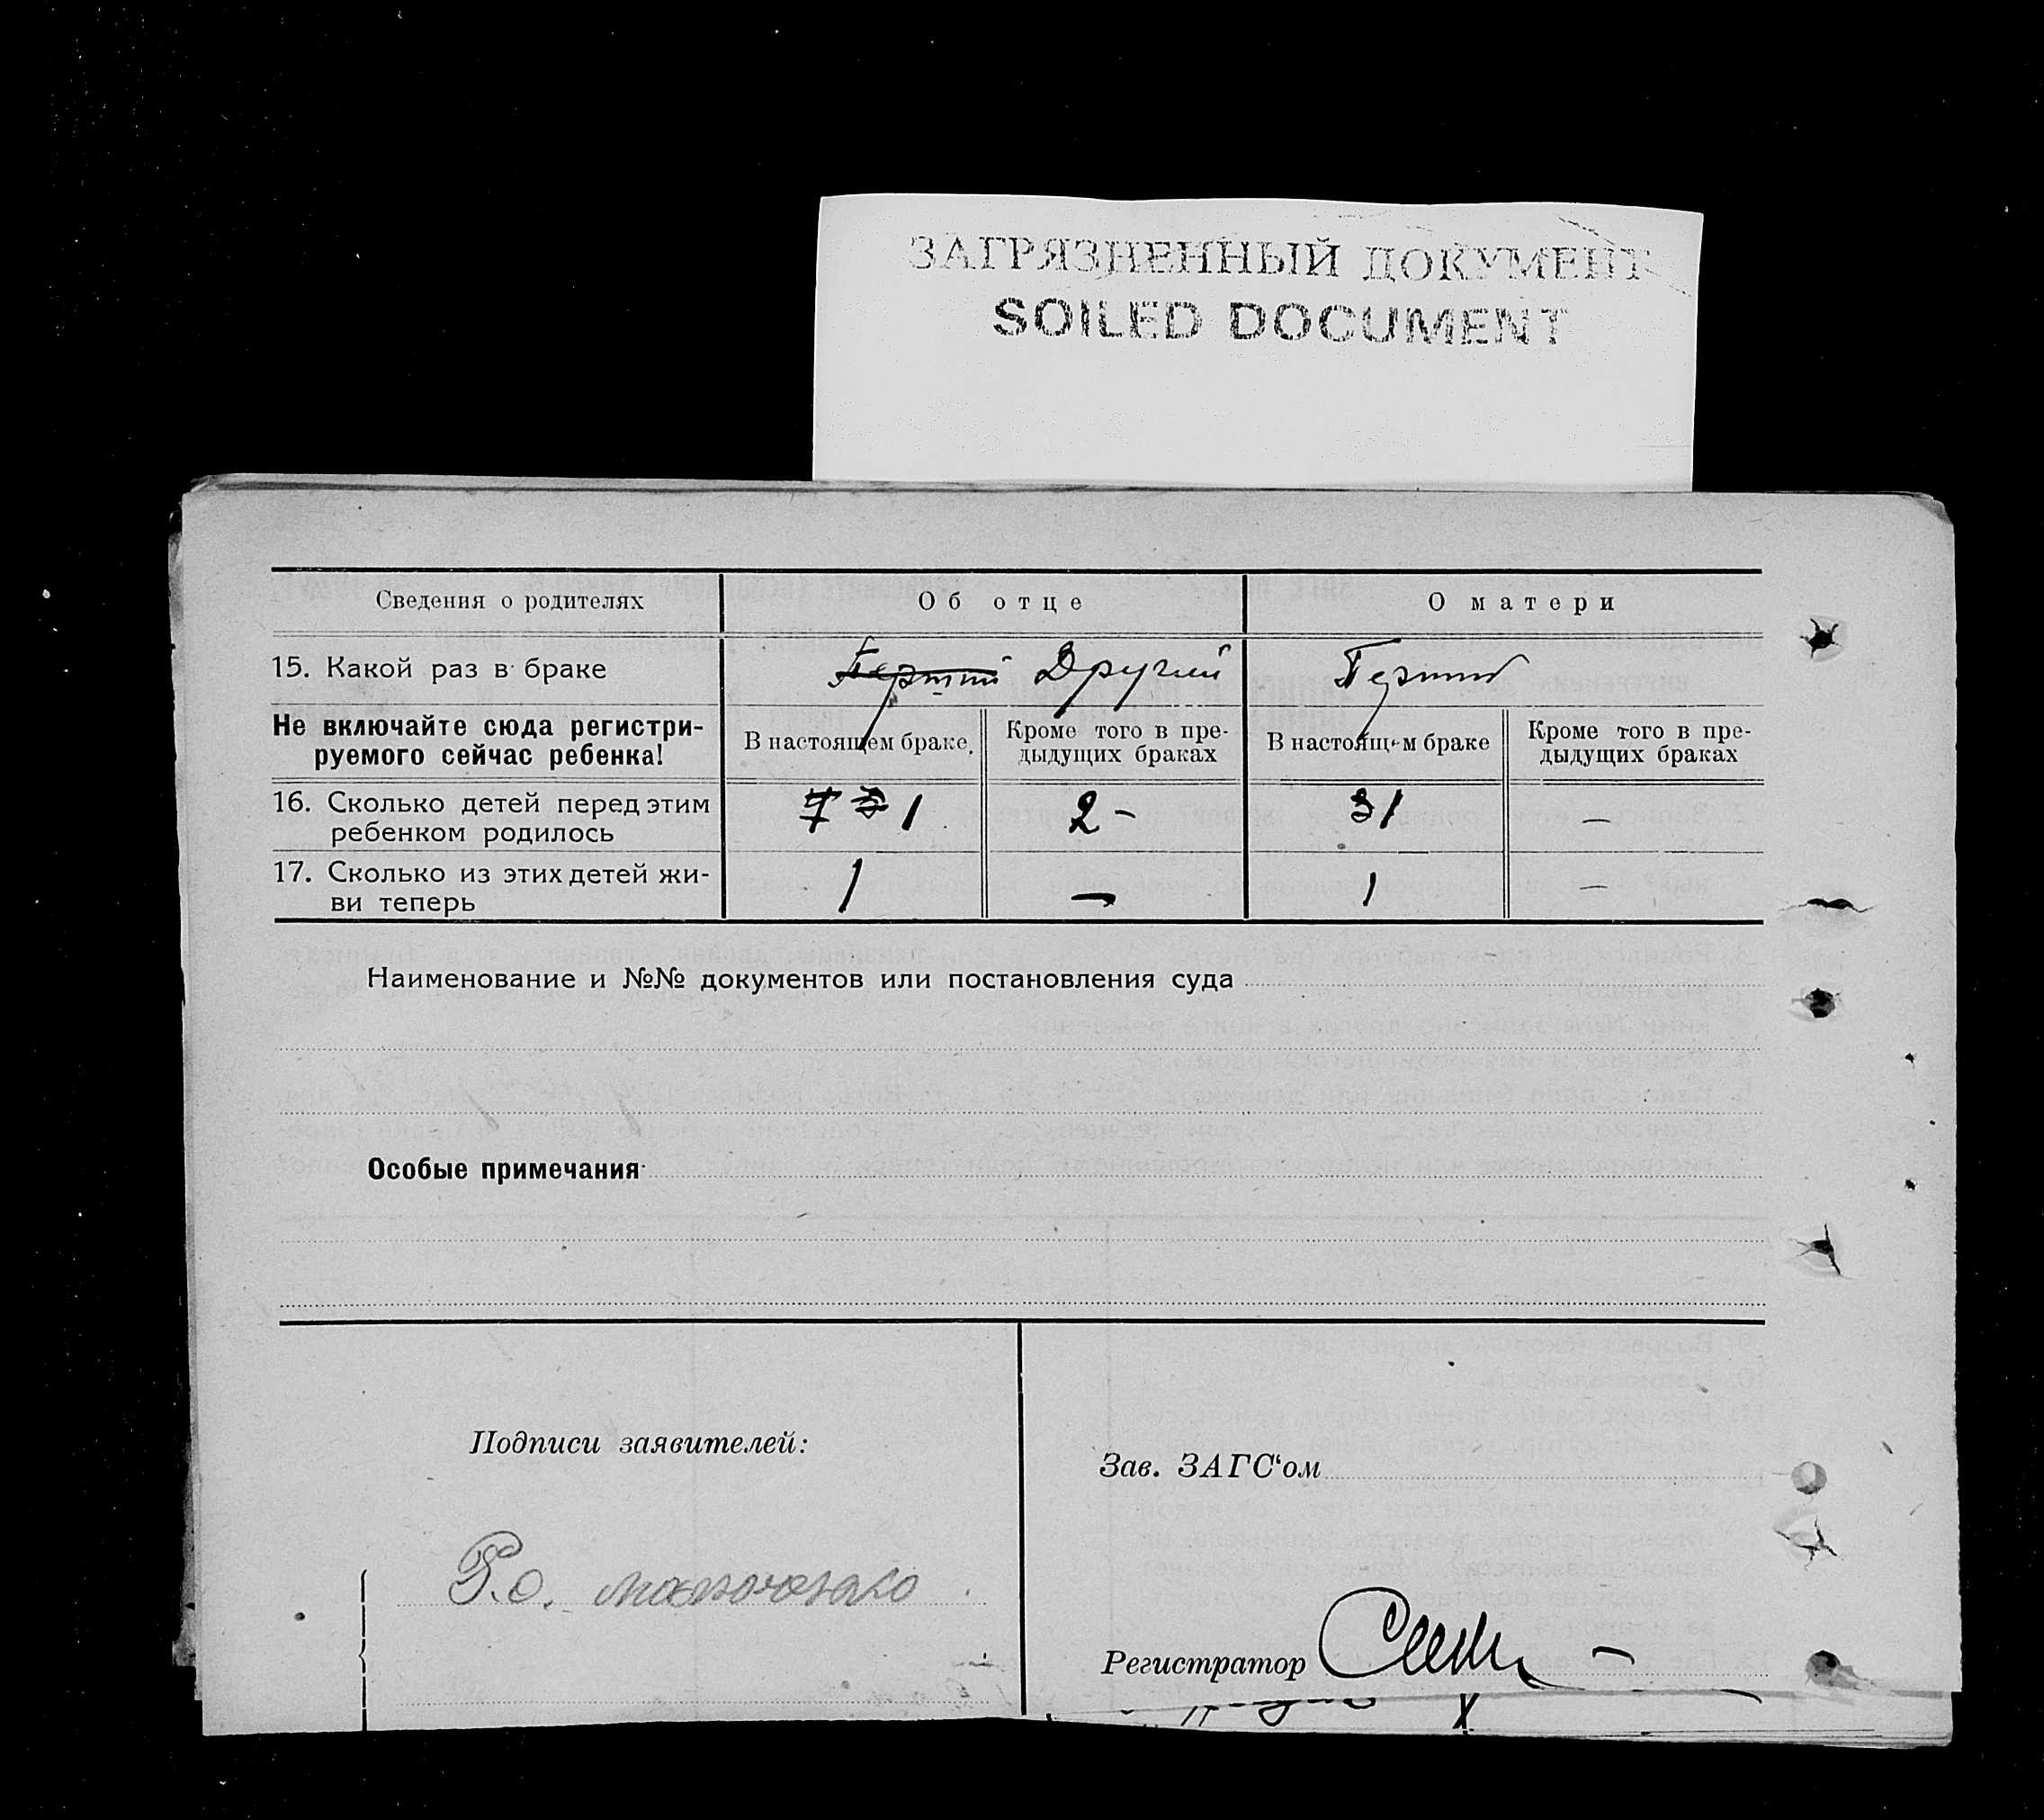 ЗАГРЯЗНЕННЫЙ ДОКУМЕНТ
SOILED DOCUMENT
Сведения о родителях Об отце О матери
15. Какой раз в браке Первый Другий Первый
Не включайте сюда регистри-
руемого сейчас ребенка!
В настоящем браке.
Кроме того в пре-
дыдущих браках
В настоящем браке
Кроме того в пре-
дыдущих браках
16. Сколько детей перед этим
ребенком родилось
7 3 1 2 - 3 1 —
17. Сколько из этих детей жи-
ви теперь
1 — 1 —
Наименование и №№ документов или постановления суда
Особые примечания
Подписи заявителей:
Зав. ЗАГС‘ом
Регистратор